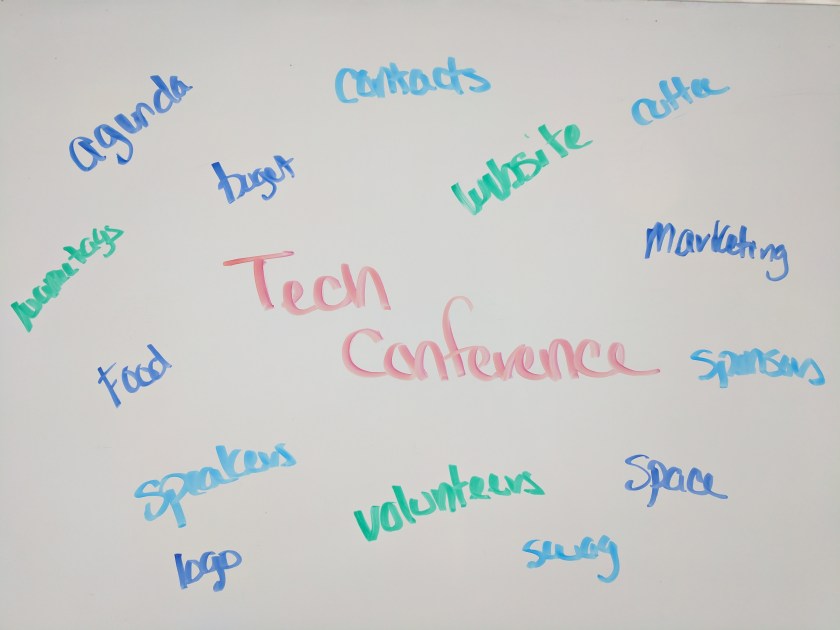 contacts
coffee
agenda
buget
website
nametags
Marketing
Tech
Conference
Food
sponsers
speakers
volunteers
Space
logo
swag